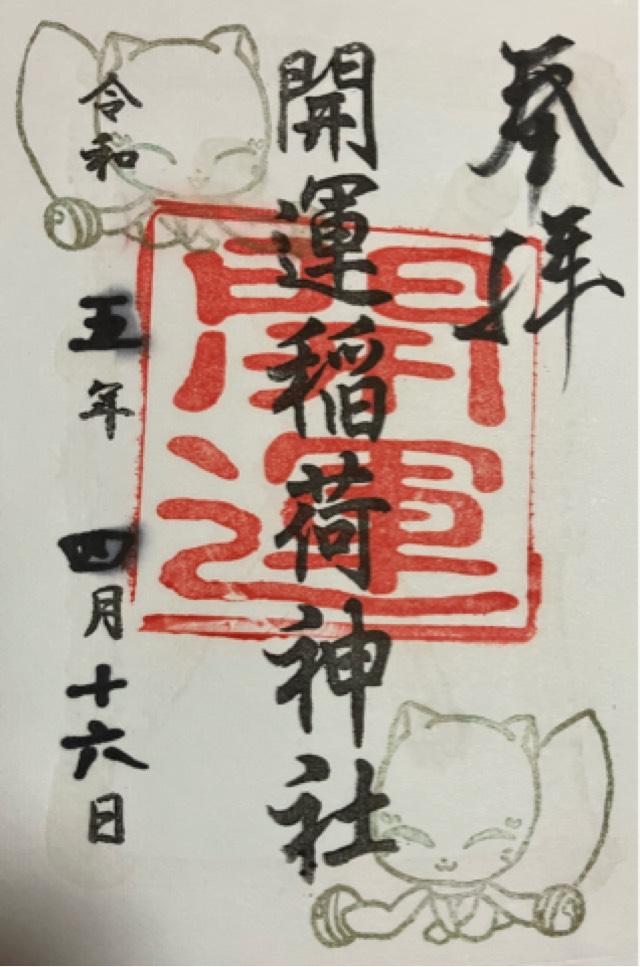 奉拝
開運稲荷神社
開運
令和五年四月十六日